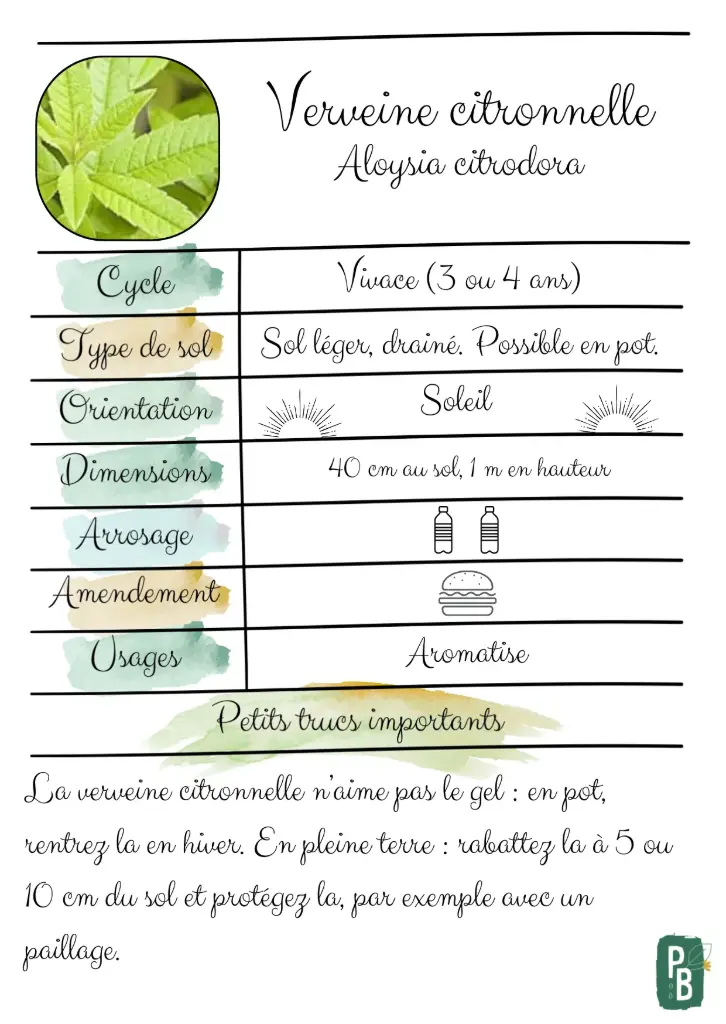 Verveine citronnelle
Aloysia citrodora
Cycle
Vivace (3 ou 4 ans)
Type de sol
Sol léger, drainé. Possible en pot.
Orientation
Soleil
Dimensions
40 cm au sol, 1 m en hauteur
Arrosage
Amendement
Usages
Aromatise
Petits trucs importants
La verveine citronnelle n'aime pas le gel : en pot,
rentrez la en hiver. En pleine terre : rabattez la à 5 ou
10 cm du sol et protégez la, par exemple avec un
paillage.
PB